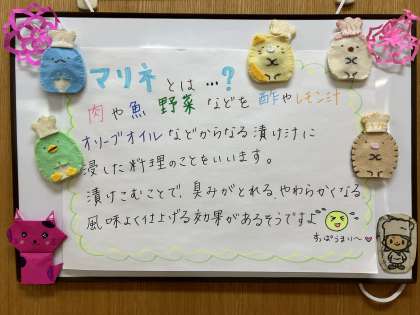 マリネとは…?
肉や魚 野菜などを酢やレモン汁
オリーブオイルなどからなる漬け汁に
浸した料理のことをいいます。
漬けこむことで、臭みがとれる、やわらかくなる
風味よく仕上げる効果があるそうですよ
すっぱうまい〜